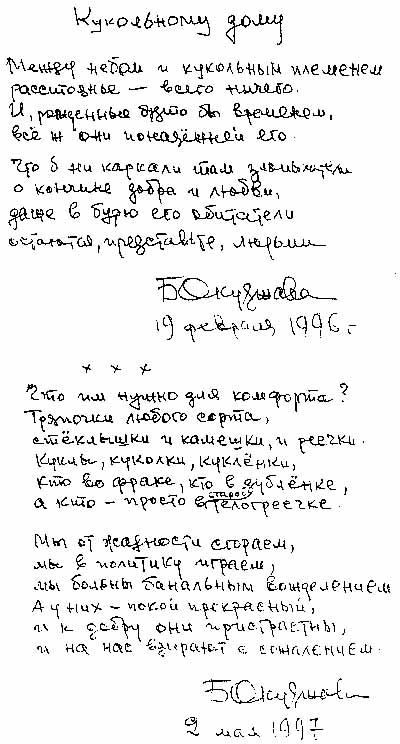 Кукольному дому
Между небом и кукольным племенем
расстояние — всего ничего.
И, рожденные будто бы временем,
всё ж они понадёжней его.
Что б ни каркали там злопыхатели
о кончине добра и любви,
даже в бурю его обитатели
остаются, представьте, людьми
Б Окуджава
19 февраля 1996 г.
х х х
Что им нужно для комфорта?
Тряпочки любого сорта,
стёклышки и камешки, и реечки.
Куклы, куколки, куклёнки,
кто во фраке, кто в дублёнке,
а кто — просто в старой телогреечке.
Мы от жадности сгораем,
мы в политику играем,
мы больны банальным вожделением
А у них — покой прекрасный,
и к добру они пристрастны,
и на нас взирают с сожалением.
Б Окуджава
2 мая 1997